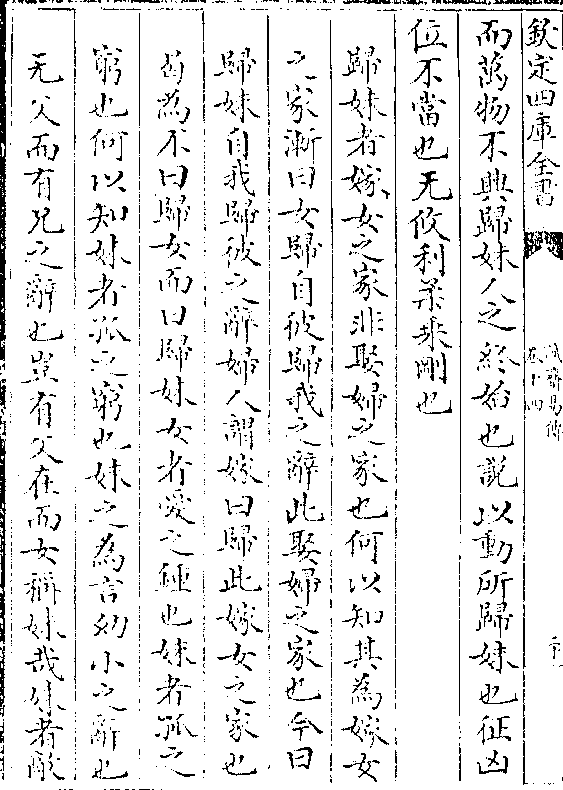 欽定四庫全書
誠齋易傳
卷十四
而萬物不興歸妹人之終始也說以動所歸妹也征凶
位不當也无攸利柔乗剛也
歸妹者嫁女之家非娶婦之家也何以知其為嫁女
之家漸曰女歸自彼歸我之辭此娶婦之家也今曰
歸妹自我歸彼之辭婦人謂嫁曰歸此嫁女之家也
曷為不曰歸女而曰歸妹女者愛之鍾也妹者孤之
窮也何以知妹者孤之窮也妹之為言幼小之辭也
无父而有兄之辭也豈有父在而女稱妹哉妹者敵